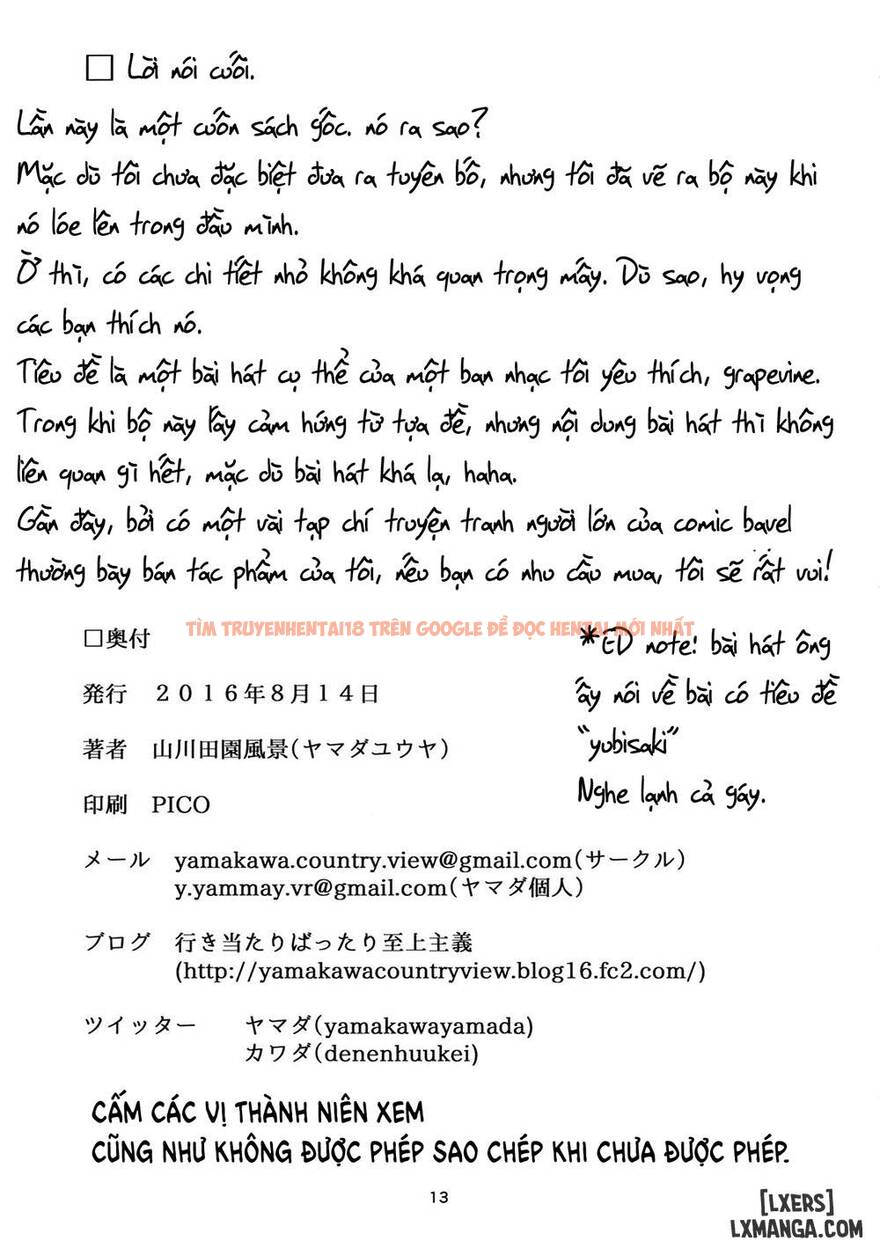 □ Lời nói cuối.
Lần này là một cuốn sách gốc. nó ra sao?
Mặc dù tôi chưa đặc biệt đưa ra tuyên bố, nhưng tôi đã vẽ ra bộ này khi
nó lóe lên trong đầu mình.
Ờ thì, có các chi tiết nhỏ không khá quan trọng mấy. Dù sao, hy vọng
các bạn thích nó.
Tiêu đề là một bài hát cụ thể của một ban nhạc tôi yêu thích, grapevine.
Trong khi bộ này lấy cảm hứng từ tựa đề, nhưng nội dung bài hát thì không
liên quan gì hết, mặc dù bài hát khá lạ, haha.
Gần đây, bởi có một vài tạp chí truyện tranh người lớn của comic bavel
thường bày bán tác phẩm của tôi, nếu bạn có nhu cầu mua, tôi sẽ rất vui!
TÌM TRUYENHENTAI18 TRÊN GOOGLE ĐỂ ĐỌC HENTAI MỚI NHẤT
*ED note! bài hát ông
ấy nói về bài có tiêu đề
"yubisaki"
Nghe lạnh cả gáy.
□奥付
発行 2016年8月14日
著者 山川田園風景(ヤマダユウヤ)
印刷 PICO
メール yamakawa.country.view@gmail.com(サークル)
y.yammay.vr@gmail.com(ヤマダ個人)
ブログ 行き当たりばったり至上主義
(http://yamakawacountryview.blog16.fc2.com/)
ツイッター ヤマダ(yamakawayamada)
カワダ(denenhuukei)
CẤM CÁC VỊ THÀNH NIÊN XEM
CŨNG NHƯ KHÔNG ĐƯỢC PHÉP SAO CHÉP KHI CHƯA ĐƯỢC PHÉP.
13
[LXERS]
LXMANGA.COM